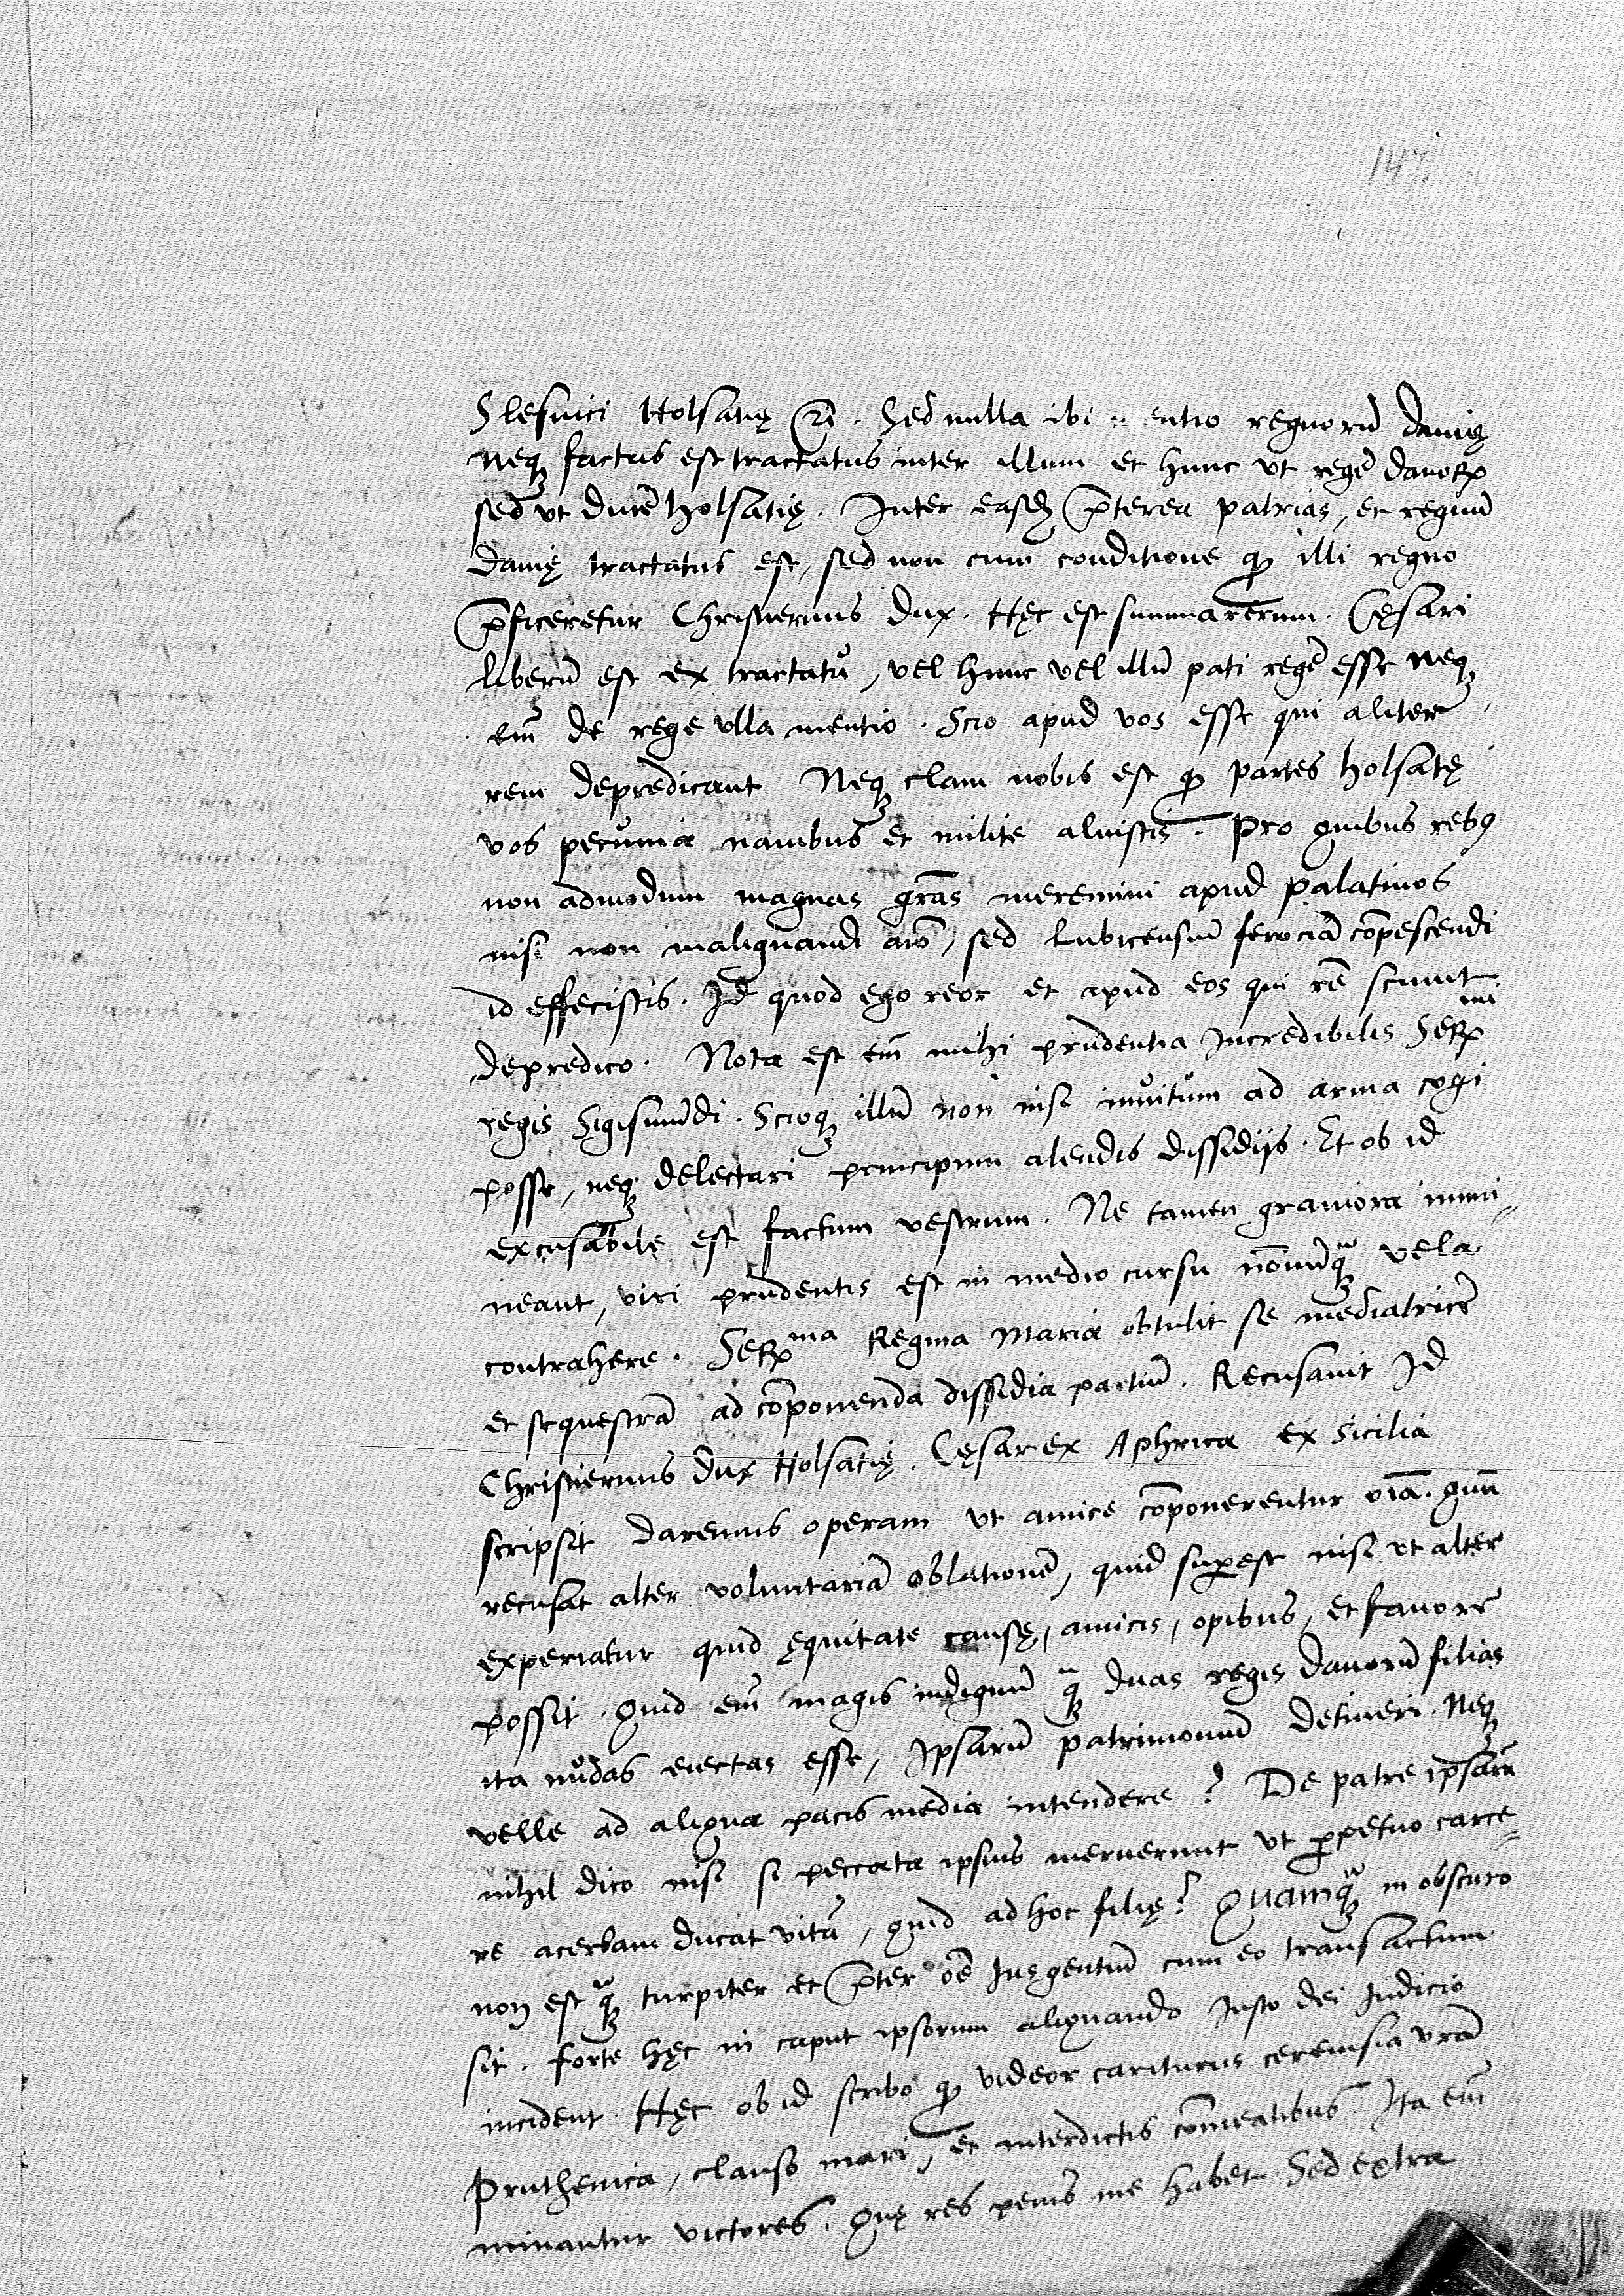 147.
Slesuici Holsatię &c. Sed nulla ibi mentio regnorũ Danię
neqʒ factus est tractatus inter illum et hunc vt regẽ danoꝝ
sed vt ducẽ holsatię. Inter easdẽ p̃terea patrias, et regnũ
Danię tractatus est, sed non cum conditione qꝫ illi regno
p̃ficeretur Christiernus dux. Hęc est summa rerum. Cęsari
liberũ est ex tractatu, vel hunc vel illũ pati regẽ esse neqʒ
em̃ de rege vlla mentio. Scio apud vos esse qui aliter
rem depredicant Neqʒ clam nobis est qꝫ partes holsatę
vos pecunia nauibus et milite aluistis. Pro quibus rebꝰ
non admodum magnas grãs meremini apud palatinos
nisi non malignandi aĩo, sed Lubicensiũ ferociã cõpescendi
id effecistis. Id quod ego reor et apud eos qui rẽ sciunt
depredico. Nota est em̃ mihi prudentia Incredibilis Seꝝmi
regis Sigismũdi. Scioqʒ illũ non nisi inuitum ad arma cogi
posse, neqʒ delectari principum alendis dissidijs. Et ob id
excusabile est factum vestrum. Ne tamen grauiora immi=
neant, viri prudentis est in medio cursu nõnũqʒ vela
contrahere. Seꝝma Regina Maria obtulit se mediatricẽ
et sequestrã ad cõponenda dissidia partiũ. Recusauit Id
Christiernus dux Holsatię. Cęsar ex Aphrica ex Sicilia
scripsit daremus operam vt amice cõponerentur oĩa. quũ
recusat alter voluntariã oblationẽ, quid suꝑest nisi vt alter
experiatur quid ęquitate causę, amicis, opibus, et fauore
possit. Quid em̃ magis indignũ qʒ duas regis danorũ filias
ita nudas eiectas esse, Ipsarũ patrimoniũ detineri. Neqʒ
velle ad aliqua pacis media intendere? De patre ipsarũ
nihil dico nisi si peccata ipsius meruerunt vt ꝑpetuo carce=
re acerbam ducat vitã, quid ad hoc filię? Quamqʒ in obscuro
non est qʒ turpiter et p̃ter oẽ Ius gentiũ cum eo transactum
sit. Forte hęc in caput ipsorum aliquando Iusto dei Iudicio
incident. Hęc ob id scribo qꝫ videor cariturus cereuisia vrã
Pruthenica, clauso mari, et interdictis cõmeatibus. Ita em̃
minantur victores. Quę res peius me habet. Sed extra